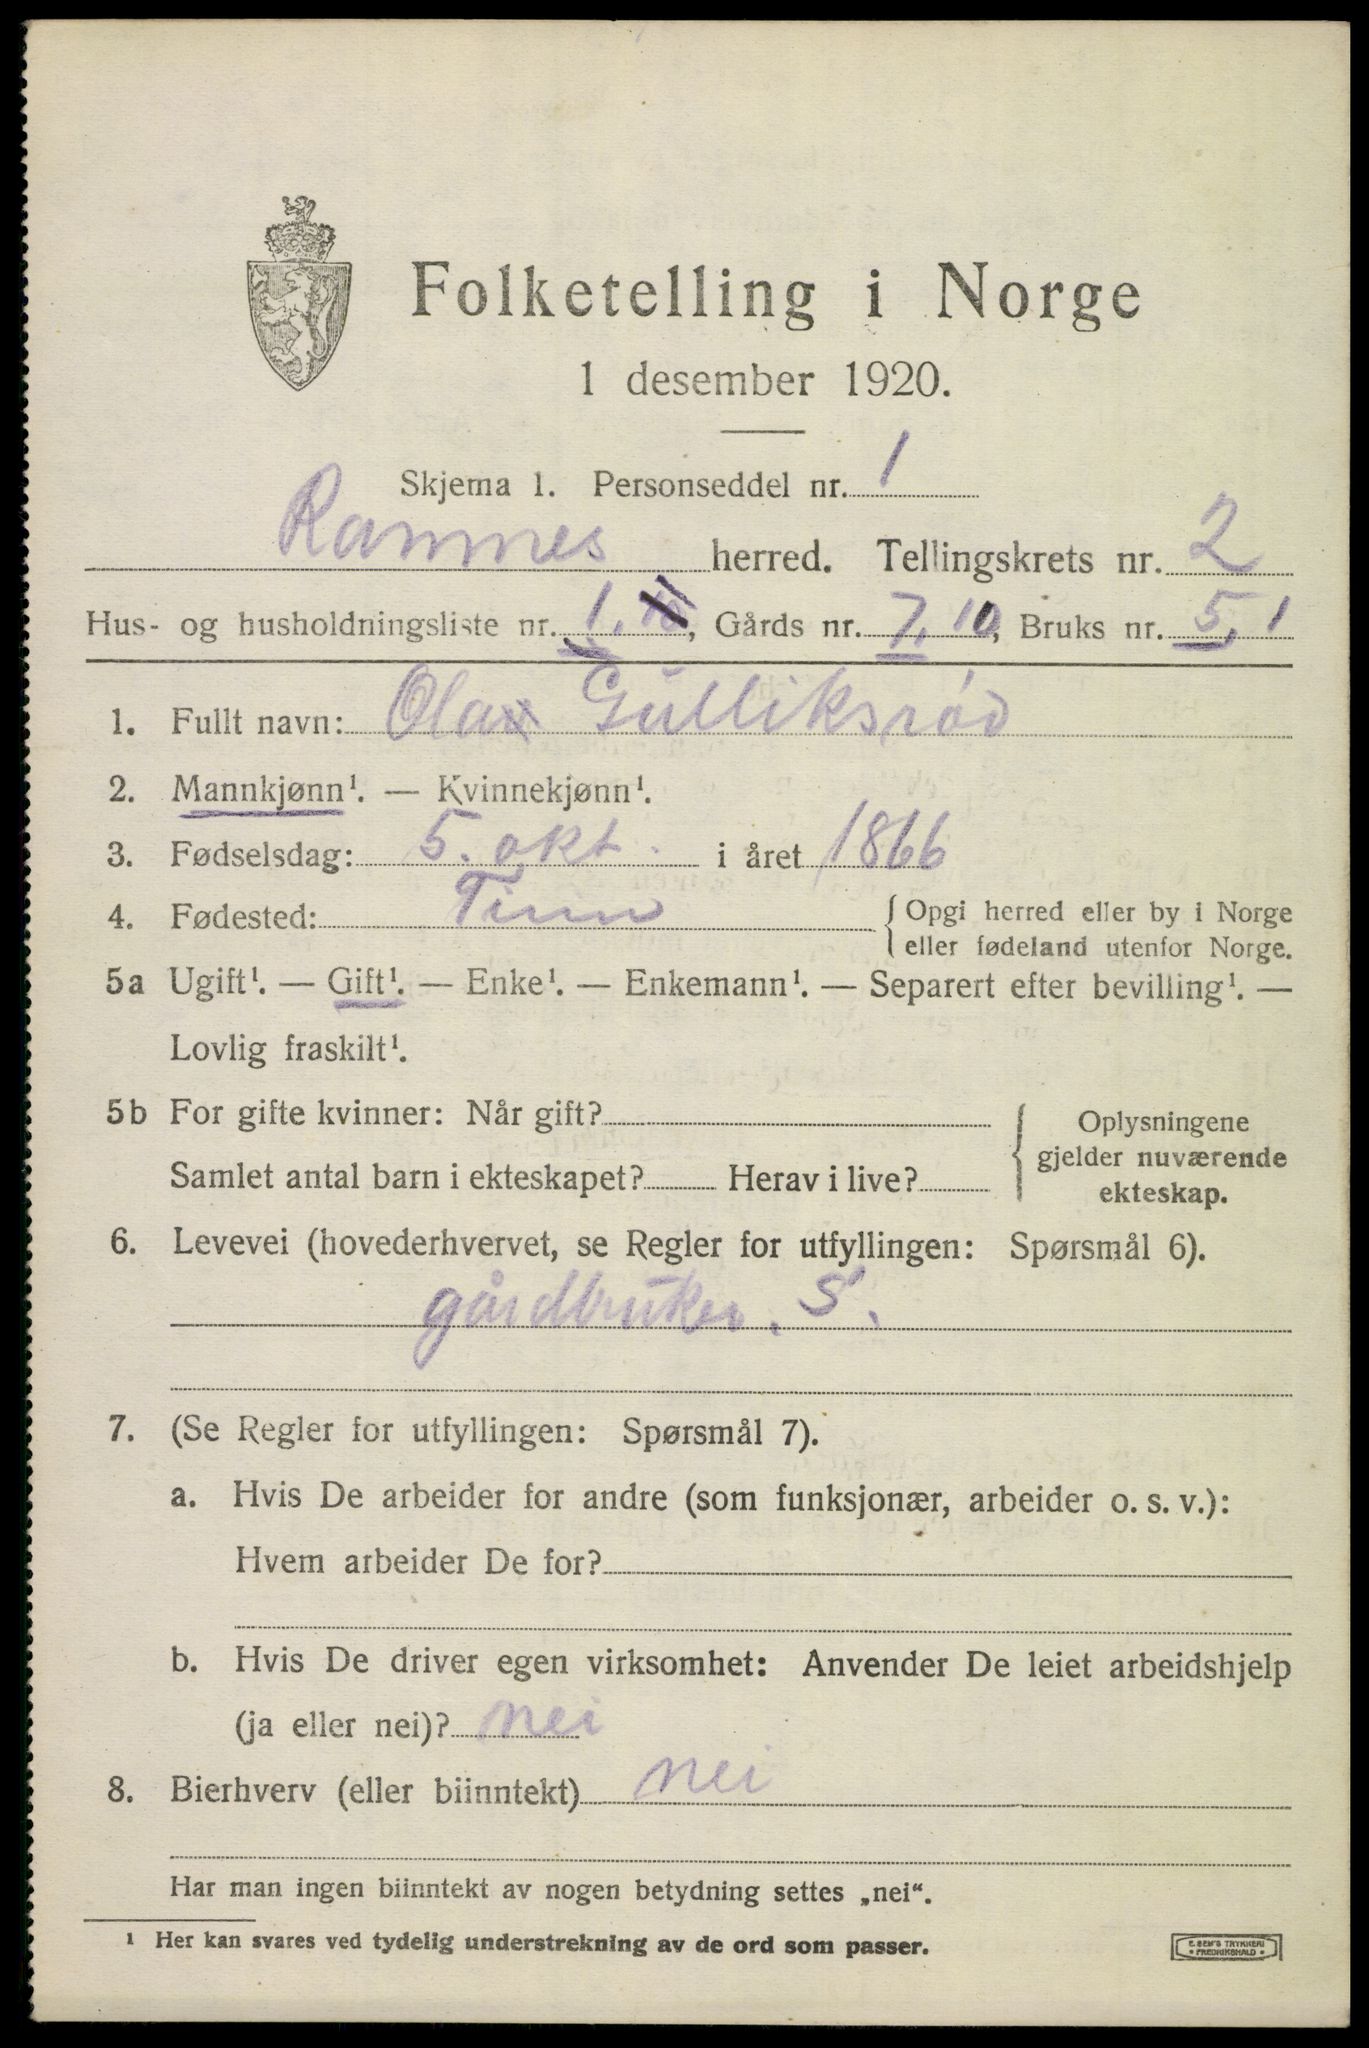 Folketelling i Norge
1 desember 1920.
Skjema 1. Personseddel nr. 1
Ramnes herred. Tellingskrets nr. 2
Hus- og husholdningsliste nr. 1, 10, Gårds nr. 7, 10, Bruks nr. 5, 1
1. Fullt navn: Ola Gulliksrød
2. Mannkjønn¹. — Kvinnekjønn¹.
3. Fødselsdag: 5. okt. i året 1866
4. Fødested: Tinn { Opgi herred eller by i Norge
eller fødeland utenfor Norge.
5a Ugift¹. — Gift¹. — Enke¹. — Enkemann¹. — Separert efter bevilling¹. —
Lovlig fraskilt¹.
5b For gifte kvinner: Når gift? { Oplysningene
gjelder nuværende
Samlet antal barn i ekteskapet? Herav i live? ekteskap.
6. Levevei (hovederhvervet, se Regler for utfyllingen: Spørsmål 6).
gårdbruker. S.
7. (Se Regler for utfyllingen: Spørsmål 7).
a. Hvis De arbeider for andre (som funksjonær, arbeider o. s. v.):
Hvem arbeider De for?
b. Hvis De driver egen virksomhet: Anvender De leiet arbeidshjelp
(ja eller nei)? nei
8. Bierhverv (eller biinntekt) nei
Har man ingen biinntekt av nogen betydning settes „nei“.
¹ Her kan svares ved tydelig understrekning av de ord som passer.
E. SEM'S TRYKKERI
• FREDRIKSHALD •